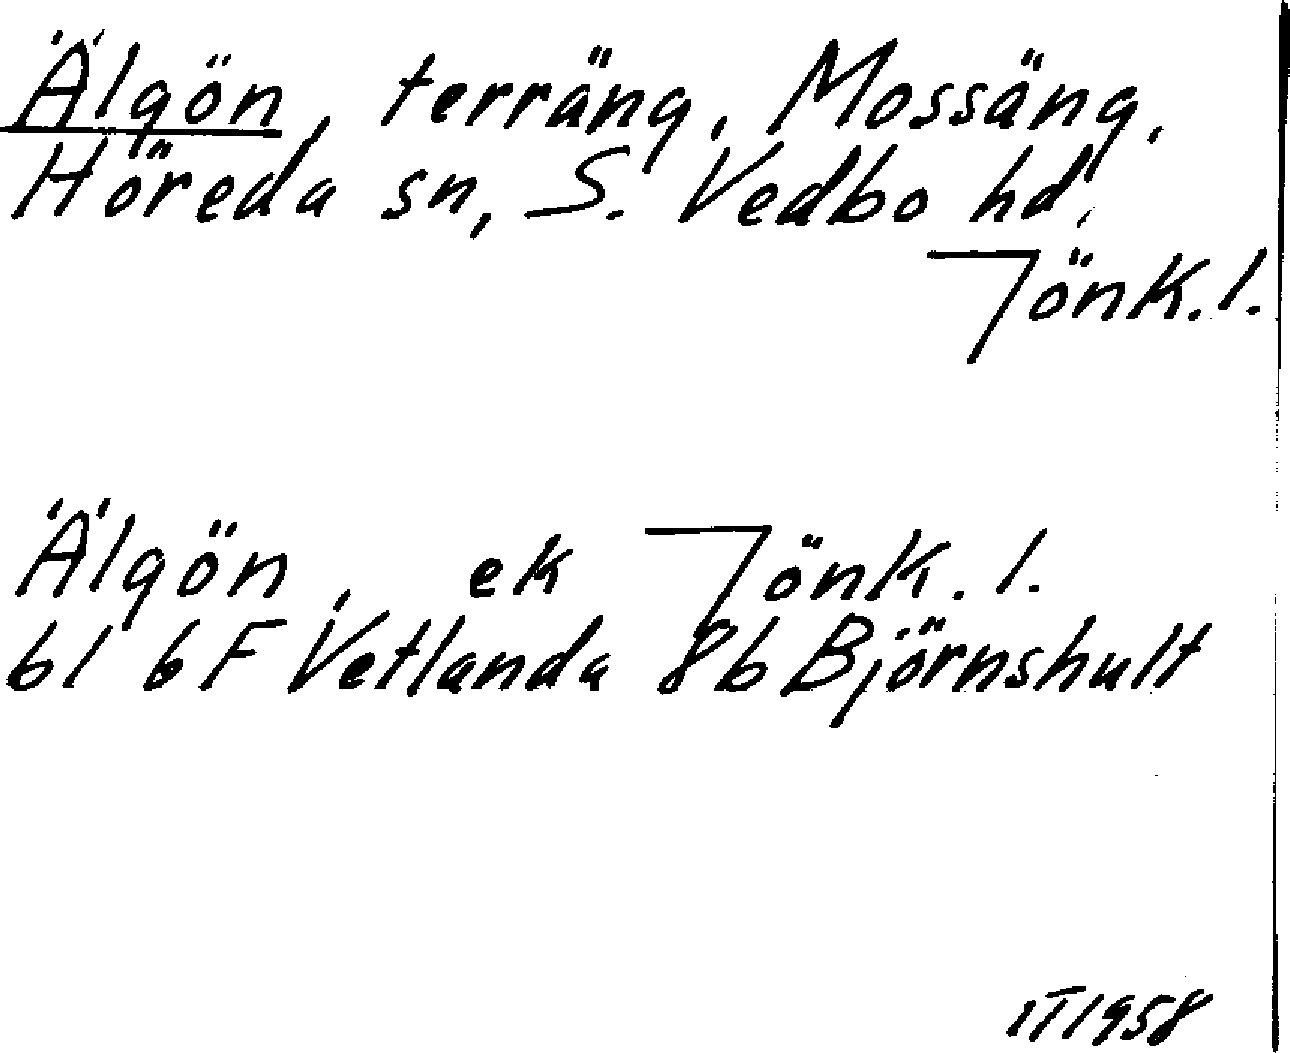 Älgön, terräng, Mossäng,
Höreda sn, S. Vedbo hd,
Jönk. l.
Älgön, ek Jönk. l.
bl 6F Vetlanda 8b Björnshult
IT 1958